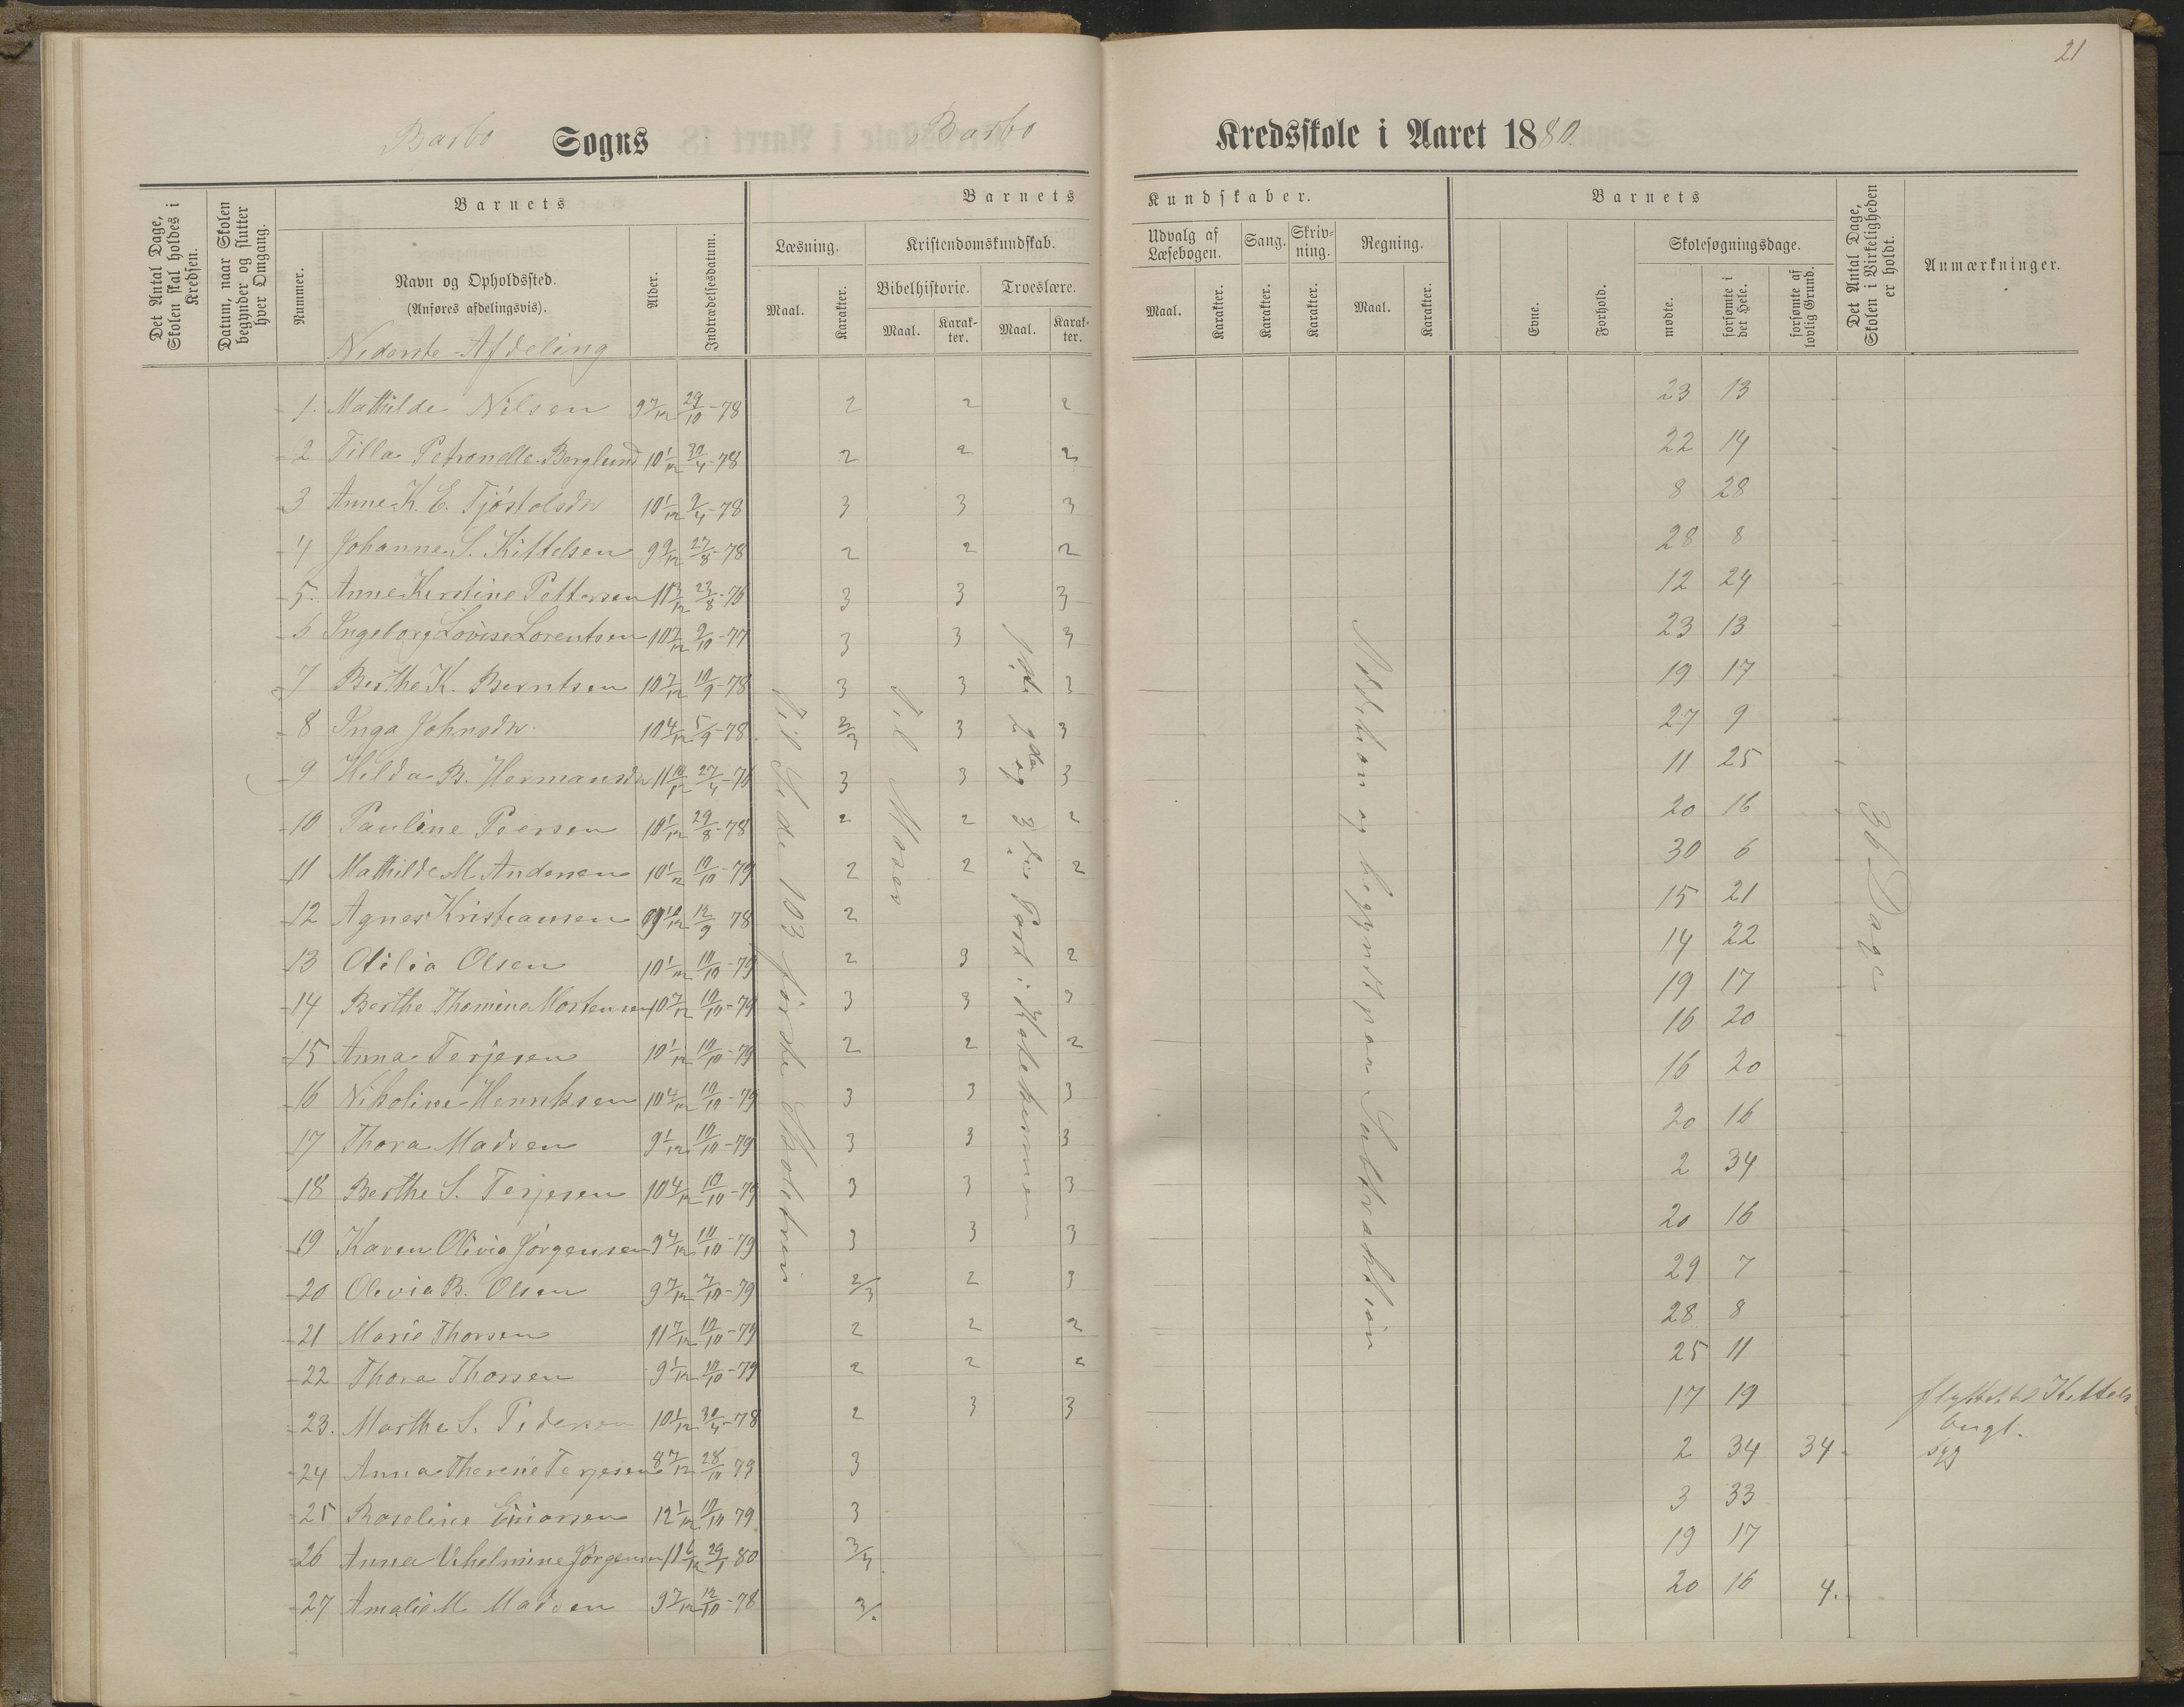 21
Barbo Sogns Barbo Kredsskole i Aaret 1880.
Det Antal Dage, Skolen skal holdes i Kredsen.
Datum, naar Skolen begynder og slutter hver Omgang.
Barnets
Nummer.
Navn og Opholdssted.
(Anføres afdelingsvis).
Alder.
Indtrædelsesdatum.
Barnets Kundskaber.
Læsning.
Maal. Karakter.
Kristendomskundskab.
Bibelhistorie. Troeslære.
Maal. Karakter. Maal. Karakter.
Udvalg af Læsebogen. Sang. Skrivning. Regning.
Maal. Karakter. Karakter. Karakter. Maal. Karakter.
Barnets
Evne. Forhold.
Skolesøgningsdage.
mødte. forsømte i det Hele. forsømte af lovlig Grund.
Det Antal Dage, Skolen i Virkeligheden er holdt.
Anmærkninger.
Nederste Afdeling
1. Mathilde Nilsen 9 7/12 29/10-78 2 2 2 23 13
2 Tilla Petronelle Berglund 10 1/12 30/4-78 2 2 2 22 14
3 Anne K. E. Tjøstolsdr 10 1/12 9/4-78 3 3 3 8 28
4 Johanne S. Kittelsen 9 9/12 27/8-78 2 2 2 28 8
5. Anne Kirstine Pettersen 11 3/12 23/8-76 3 3 3 12 24
6 Ingeborg Lovise Lorentsen 10 7/12 9/10-77 3 3 3 23 13
7 Berthe K. Berntsen 10 7/12 10/9-78 3 3 3 19 17
8 Inga Johnsdr. 10 4/12 5/9-78. 2/3 3 3 27 9
9 Hilda B. Hermansdr 11 10/12 27/4-76 3 3 3 11 25
10 Pauline Peersen 10 1/12 29/8-78 2 2 2 20 16
11 Mathilde M. Andersen 10 1/12 10/10-79 2 2 2 30 6
12 Agnes Kristiansen 9 10/12 12/9 78 2 15 21
13 Otilia Olsen 10 1/12 10/10-79 2 3 2 14 22
14 Berthe Thomine Mortensen 10 7/12 10/10-79 3 3 3 19 17
15 Anna Terjesen 10 1/12 10/10-79 2 2 2 16 20
16 Nikoline Henriksen 10 4/12 10/10-79 3 3 3 16 20
17 Thora Madsen 9 1/12 10/10-79 3 3 3 20 16
18 Berthe S. Terjesen 10 4/12 10/10-79 3 3 3 2 34
19 Karen Olivia Jørgensen 9 4/12 10/10-79 3 3 3 20 16
20 Olevia B. Olsen 9 7/12 7/10-79 2/3 2 3 29 7
21 Marie Thorsen 11 7/12 10/10-79 2 2 2 28 8
22 Thora Thorsen 9 1/12 10/10-79 2 2 2 25 11
23. Marthe S. Pedersen 10 1/12 30/4-78 2 3 3 17 19 flyttet til Kittels-
bugt.
24 Anna Theresie Terjesen 8 7/12 28/10 79 3 2 34 34 syg
25 Roseline Einarsen 12 1/12 10/10 79 3 3 33
26 Anna Vilhelmine Jørgensen 11 6/12 29/1 80 3/4. 19 17
27 Amalie M. Madsen 9 7/12 12/10-78 3/. 20 16 4.
Til Side 103 første Skoletrin
Til Moses
1ste 2den og 3die Part i Katekismen
Addition og begyndt paa Subtraktion
36 Dage